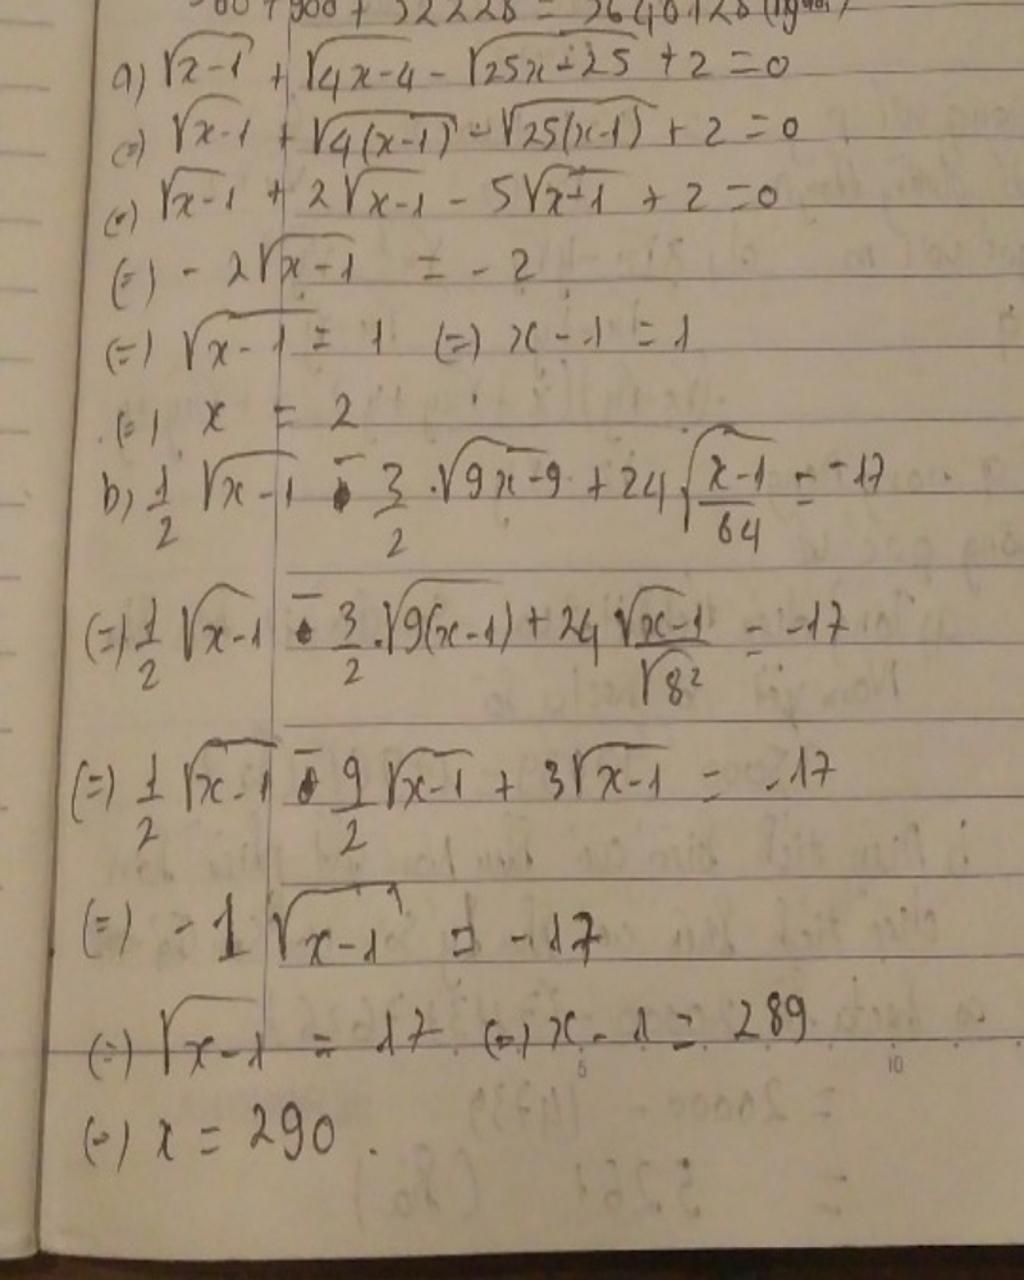 a) √(x-1) + √(4x-4) - √(25x-25) + 2 = 0
(=) √(x-1) + √(4(x-1)) - √(25(x-1)) + 2 = 0
(=) √(x-1) + 2√(x-1) - 5√(x-1) + 2 = 0
(=) - 2√(x-1) = - 2
(=) √(x-1) = 1 (=) x - 1 = 1
(=) x = 2
b) 1/2 √(x-1) - 3/2 . √(9x-9) + 24 √((x-1)/64) = -17
(=) 1/2 √(x-1) - 3/2 . √(9(x-1)) + 24 √(x-1)/√(8²) = -17
(=) 1/2 √(x-1) - 9/2 √(x-1) + 3√(x-1) = -17
(=) - 1 √(x-1) = -17
(=) √(x-1) = 17 (=) x - 1 = 289
(=) x = 290.
5 10